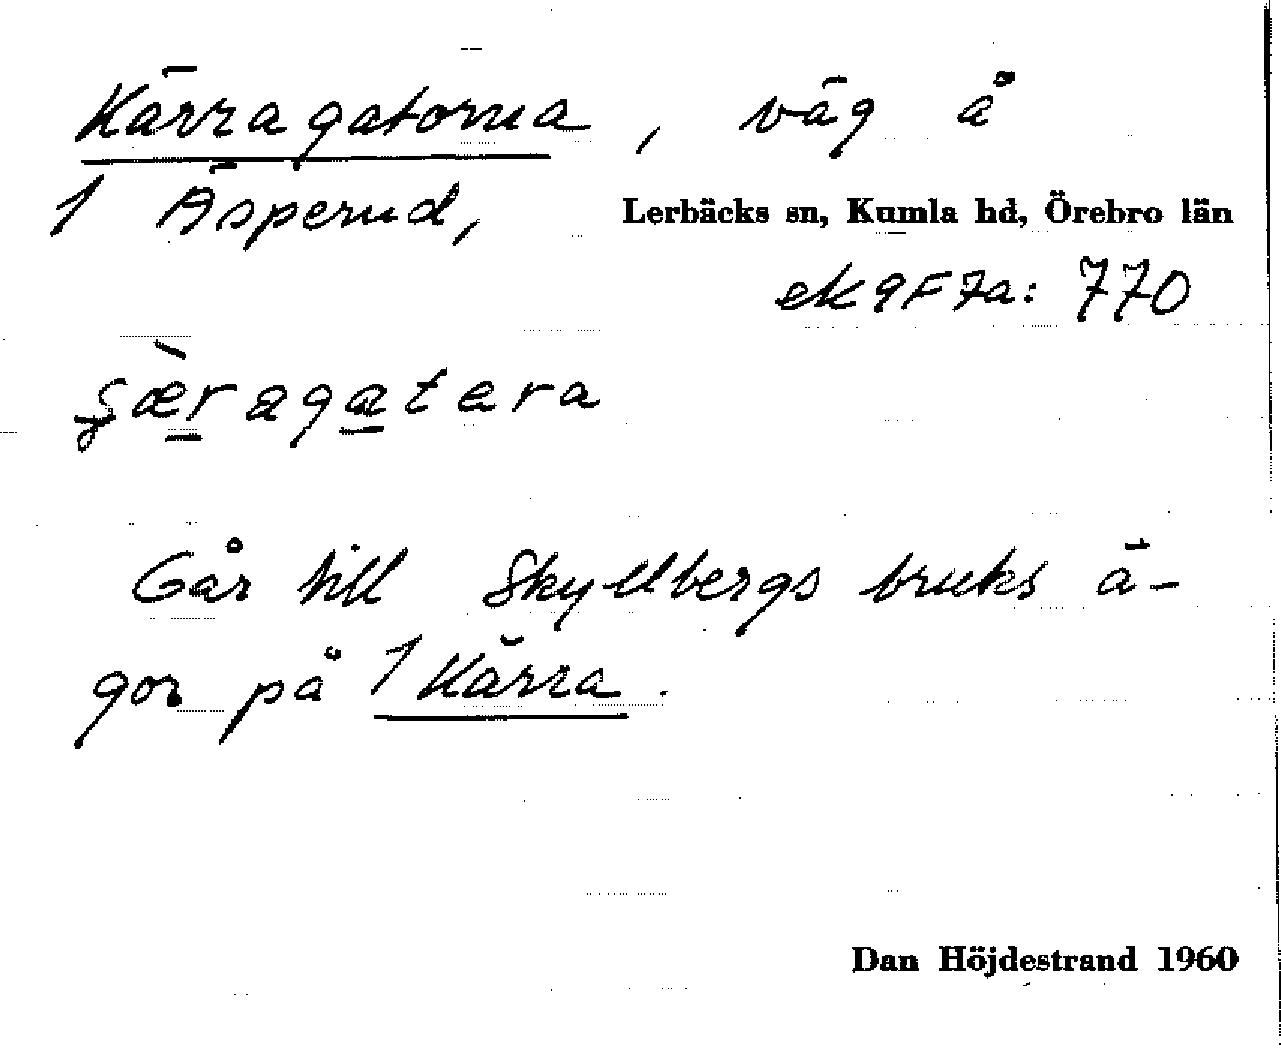 Kärragatorna, väg å
1 Äsperud, Lerbäcks sn, Kumla hd, Örebro län
ek 9F7a: 770
çæ̀ragatera
Går till Skyllbergs bruks ä-
gor på 1 Kärra.
Dan Höjdestrand 1960